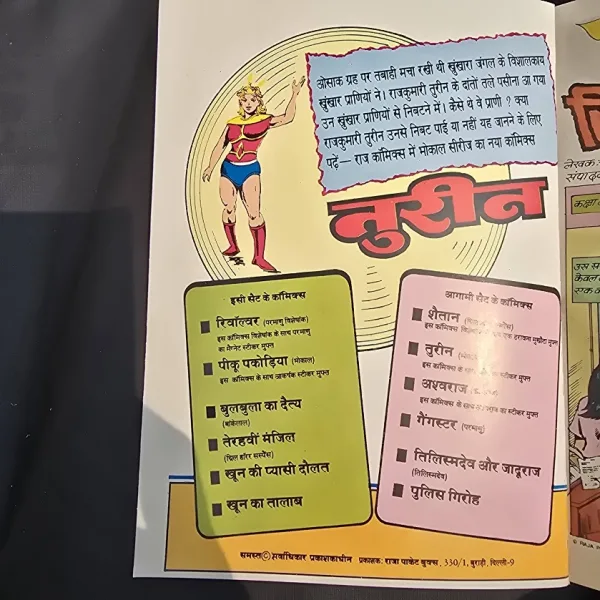 ओसाक ग्रह पर तबाही मचा रखी थी खुंखारा जंगल के विशालकाय
खुंखार प्राणियों ने। राजकुमारी तुरीन के दांतों तले पसीना आ गया
उन खुंखार प्राणियों से निबटने में। कैसे थे वे प्राणी ? क्या
राजकुमारी तुरीन उनसे निबट पाई या नहीं यह जानने के लिए
पढ़ें— राज कॉमिक्स में भोकाल सीरीज का नया कॉमिक्स
तुरीन
इसी सैट के कॉमिक्स
रिवॉल्वर (परमाणु विशेषांक)
इस कॉमिक्स विशेषांक के साथ परमाणु
का मैग्नेट स्टीकर मुफ्त
पीकू पकोड़िया (भोकाल)
इस कॉमिक्स के साथ आकर्षक स्टीकर मुफ्त
बुलबुला का दैत्य
(बांकेलाल)
तेरहवीं मंजिल
(थ्रिल हॉरर सस्पैंस)
खून की प्यासी दौलत
खून का तालाब
आगामी सैट के कॉमिक्स
शैतान
इस कॉमिक्स विशेषांक के साथ एक डरावना मुखौटा मुफ्त
तुरीन
इस कॉमिक्स के साथ स्टीकर मुफ्त
अश्वराज
इस कॉमिक्स के साथ का स्टीकर मुफ्त
गैंगस्टर (परमाणु)
तिलिस्मदेव और जादूराज
(तिलिस्मदेव)
पुलिस गिरोह
समस्त © सर्वाधिकार प्रकाशकाधीन प्रकाशक: राजा पाकेट बुक्स, 330/1, बुराड़ी, दिल्ली-9
लेखक
संपादक
कक्षा
उस स
केवल
एक क
© RAJA